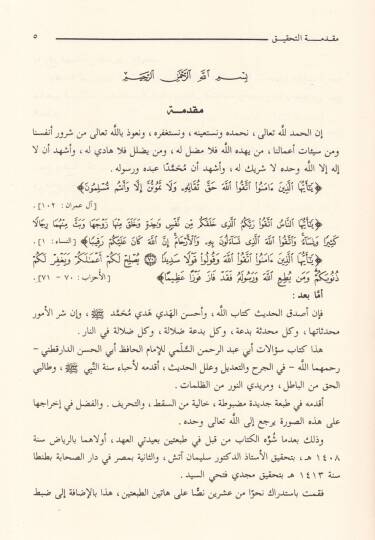 مقدمـة التحقيق ٥
بِسْمِ اللَّهِ الرَّحْمَنِ الرَّحِيمِ
مقدمـة
إن الحمد للَّه تعالى ، نحمده ونستعينه ، ونستغفره ، ونعوذ باللَّه تعالى من شرور أنفسنا
ومن سيئات أعمالنا ، من يهده اللَّه فلا مضل له ، ومن يضلل فلا هادي له ، وأشهد أن لا
إله إلا اللَّه وحده لا شريك له ، وأشهد أن مُحَمَّدًا عبده ورسوله .
﴿يَٰٓأَيُّهَا ٱلَّذِينَ ءَامَنُوا۟ ٱتَّقُوا۟ ٱللَّهَ حَقَّ تُقَاتِهِۦ وَلَا تَمُوتُنَّ إِلَّا وَأَنتُم مُّسْلِمُونَ﴾
[آل عمران : ١٠٢] .
﴿يَٰٓأَيُّهَا ٱلنَّاسُ ٱتَّقُوا۟ رَبَّكُمُ ٱلَّذِى خَلَقَكُم مِّن نَّفْسٍ وَٰحِدَةٍ وَخَلَقَ مِنْهَا زَوْجَهَا وَبَثَّ مِنْهُمَا رِجَالًا
كَثِيرًا وَنِسَآءً وَٱتَّقُوا۟ ٱللَّهَ ٱلَّذِى تَسَآءَلُونَ بِهِۦ وَٱلْأَرْحَامَ إِنَّ ٱللَّهَ كَانَ عَلَيْكُمْ رَقِيبًا﴾ [النساء : ١] .
﴿يَٰٓأَيُّهَا ٱلَّذِينَ ءَامَنُوا۟ ٱتَّقُوا۟ ٱللَّهَ وَقُولُوا۟ قَوْلًا سَدِيدًا ۝ يُصْلِحْ لَكُمْ أَعْمَٰلَكُمْ وَيَغْفِرْ لَكُمْ
ذُنُوبَكُمْ وَمَن يُطِعِ ٱللَّهَ وَرَسُولَهُۥ فَقَدْ فَازَ فَوْزًا عَظِيمًا﴾ [الأحزاب : ٧٠ - ٧١] .
أمَّا بعد :
فإن أصدق الحديث كتاب اللَّه ، وأحسن الهَدي هَدي مُحَمَّد ﷺ ، وإن شر الأمور
محدثاتها ، وكل محدثة بدعة ، وكل بدعة ضلالة ، وكل ضلالة في النار .
هذا كتاب سؤالات أبي عبد الرحمن السُّلَمي للإمام الحافظ أبي الحسن الدارقطني -
رحمهما اللَّه - في الجرح والتعديل وعلل الحديث ، أقدمه لأحباء سنة النَّبي ﷺ ، وطالبي
الحق من الباطل ، ومريدي النور من الظلمات .
أقدمه في طبعة جديدة مضبوطة ، خالية من السقط ، والتحريف . والفضل في إخراجها
على هذه الصورة يرجع إلى اللَّه تعالى وحده .
وذلك بعدما شُوِّه الكتاب من قبل في طبعتين بعيدتي العهد ، أولاهما بالرياض سنة
١٤٠٨ هـ ، بتحقيق الأستاذ الدكتور سليمان آتش ، والثانية بمصر في دار الصحابة بطنطا
سنة ١٤١٣ هـ ، بتحقيق مجدي فتحي السيد .
فقمت باستدراك نحوًا من عشرين نصًّا على هاتين الطبعتين ، هذا بالإضافة إلى ضبط